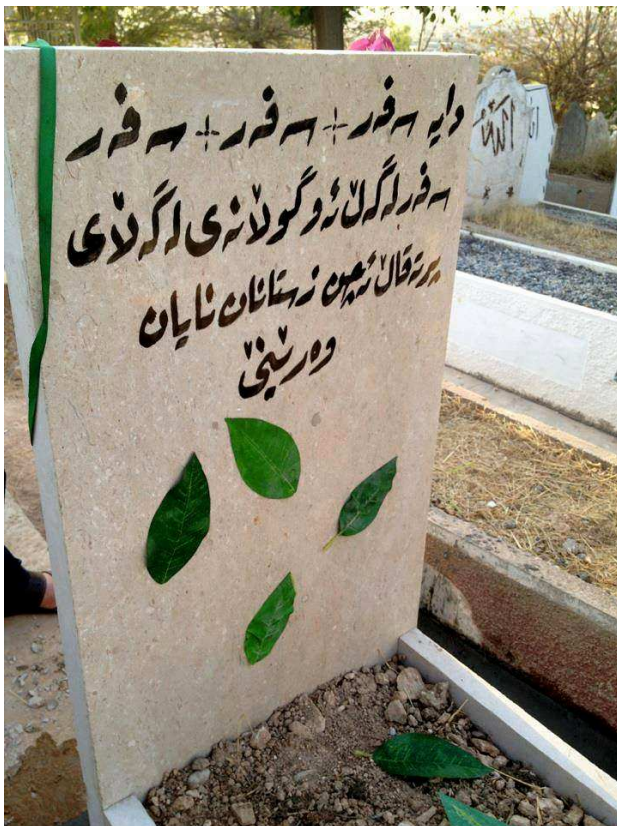 دایە سەفەر + سەفەر + سەفەر
سەفەر لەگەڵ ئەو گوڵانەی لەگەڵای
پرتەقاڵ ئەچن زستانان نایان
وەرێنێ